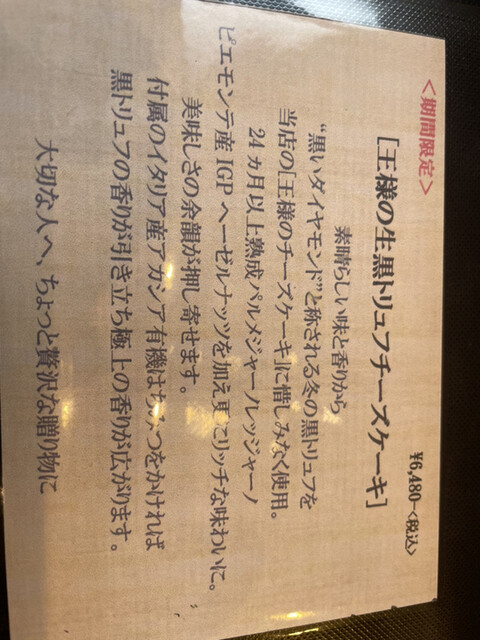 <期間限定>
[王様の生黒トリュフチーズケーキ]
¥6,480-<税込>
素晴らしい味と香りから
“黒いダイヤモンド”と称される冬の黒トリュフを
当店の[王様のチーズケーキ]に惜しみなく使用。
24ヵ月以上熟成パルメジャーノレッジャーノ
ピエモンテ産IGPヘーゼルナッツを加え更にリッチな味わいに。
美味しさの余韻が押し寄せます。
付属のイタリア産アカシア有機はちみつをかければ
黒トリュフの香りが引き立ち極上の香りが広がります。
大切な人へ、ちょっと贅沢な贈り物に